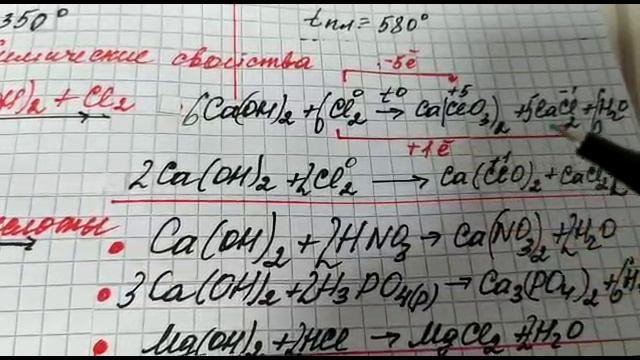 350° tпл = 580°
химические свойства
-5ē
H)₂ + Cl₂ 6Ca(OH)₂ + 6Cl₂⁰ →t⁰ Ca(Cl⁺⁵O₃)₂ + 5CaCl₂⁻¹ + 6H₂O
+1ē
2Ca(OH)₂ + 2Cl₂⁰ → Ca(Cl⁺¹O)₂ + CaCl₂
кислоты • Ca(OH)₂ + 2HNO₃ → Ca(NO₃)₂ + 2H₂O
• 3Ca(OH)₂ + 2H₃PO₄(р) → Ca₃(PO₄)₂ + 6H
• Mg(OH)₂ + 2HCl → MgCl₂ + 2H₂O